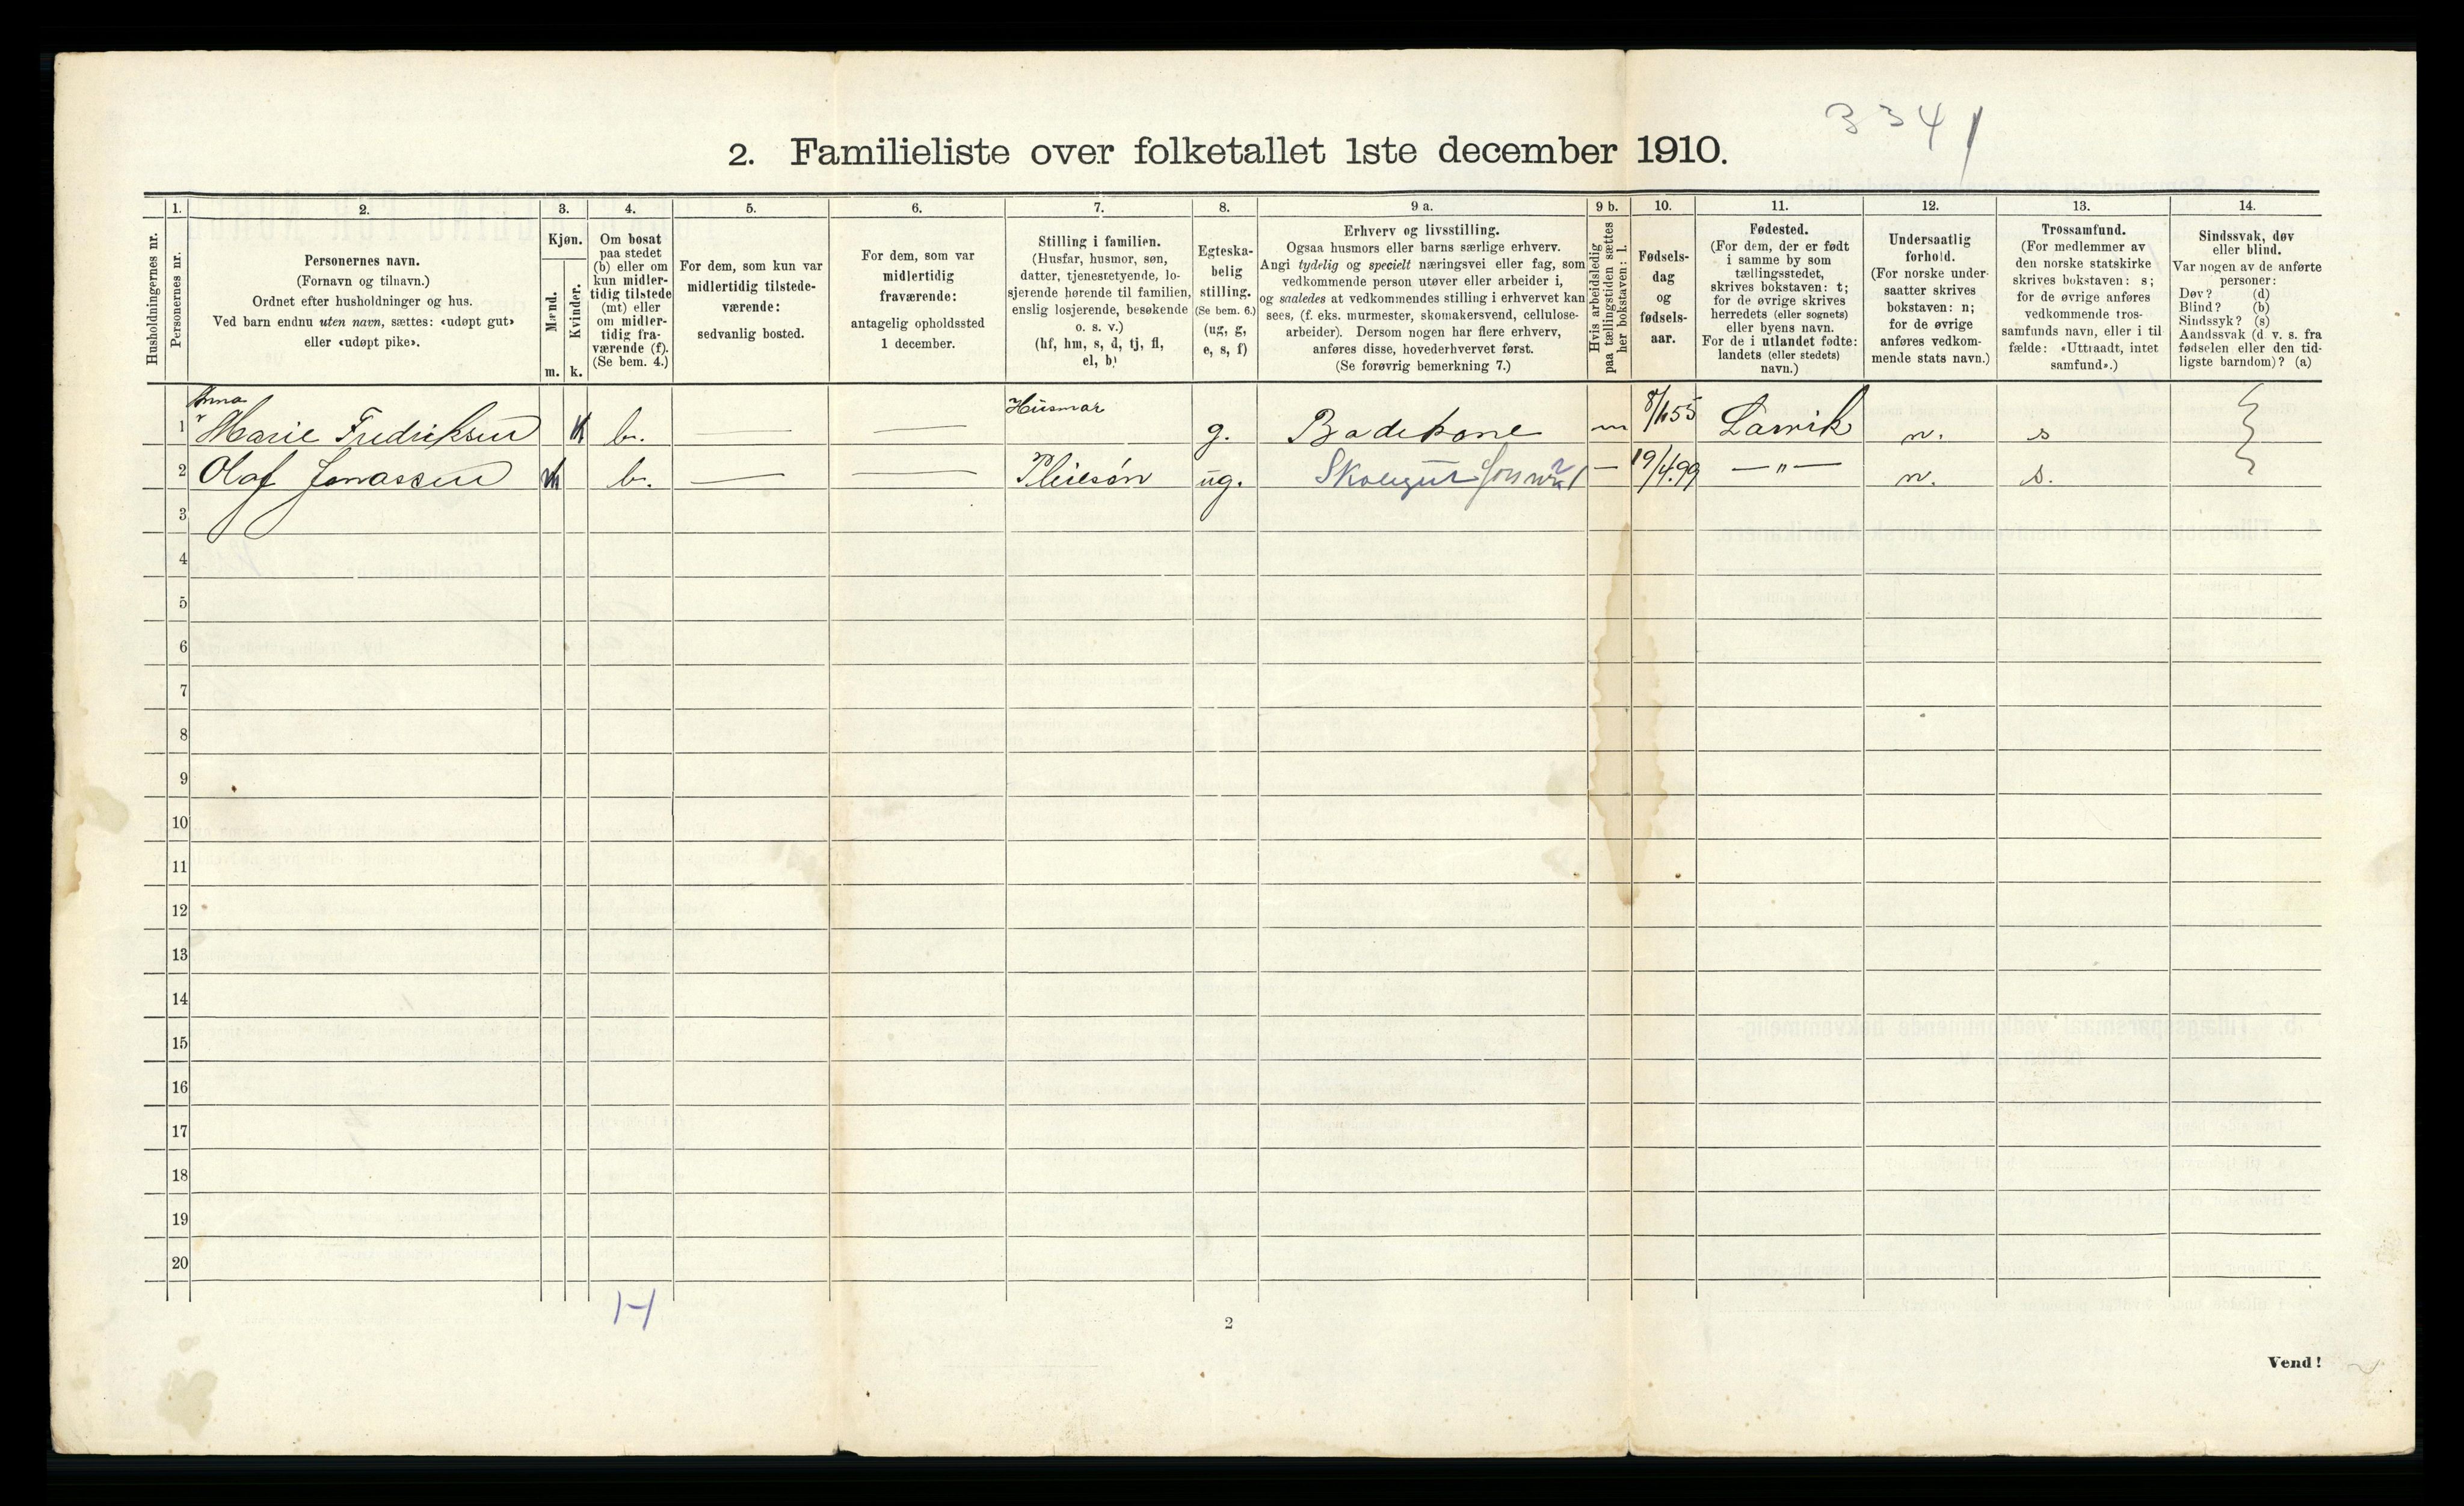 3341
2. Familieliste over folketallet 1ste december 1910.
Husholdningernes nr.
1.
Personernes nr.
2.
Personernes navn.
(Fornavn og tilnavn.)
Ordnet efter husholdninger og hus.
Ved barn endnu uten navn, sættes: «udøpt gut»
eller «udøpt pike».
3.
Kjøn.
Mænd.
Kvinder.
m. k.
4.
Om bosat
paa stedet
(b) eller om
kun midler-
tidig tilstede
(mt) eller
om midler-
tidig fra-
værende (f).
(Se bem. 4.)
5.
For dem, som kun var
midlertidig tilstede-
værende:
sedvanlig bosted.
6.
For dem, som var
midlertidig
fraværende:
antagelig opholdssted
1 december.
7.
Stilling i familien.
(Husfar, husmor, søn,
datter, tjenestetyende, lo-
sjerende hørende til familien,
enslig losjerende, besøkende
o. s. v.)
(hf, hm, s, d, tj, fl,
el, b)
8.
Egteska-
belig
stilling.
(Se bem. 6.)
(ug, g,
e, s, f)
9 a.
Erhverv og livsstilling.
Ogsaa husmors eller barns særlige erhverv.
Angi tydelig og specielt næringsvei eller fag, som
vedkommende person utøver eller arbeider i,
og saaledes at vedkommendes stilling i erhvervet kan
sees, (f. eks. murmester, skomakersvend, cellulose-
arbeider). Dersom nogen har flere erhverv,
anføres disse, hovederhvervet først.
(Se forøvrig bemerkning 7.)
9 b.
Hvis arbeidsledig
paa tællingstiden sættes
her bokstaven: l.
10.
Fødsels-
dag
og
fødsels-
aar.
11.
Fødested.
(For dem, der er født
i samme by som
tællingsstedet,
skrives bokstaven: t;
for de øvrige skrives
herredets (eller sognets)
eller byens navn.
For de i utlandet fødte:
landets (eller stedets)
navn.)
12.
Undersaatlig
forhold.
(For norske under-
saatter skrives
bokstaven: n;
for de øvrige
anføres vedkom-
mende stats navn.)
13.
Trossamfund.
(For medlemmer av
den norske statskirke
skrives bokstaven: s;
for de øvrige anføres
vedkommende tros-
samfunds navn, eller i til-
fælde: «Uttraadt, intet
samfund».)
14.
Sindssvak, døv
eller blind.
Var nogen av de anførte
personer:
Døv? (d)
Blind? (b)
Sindssyk? (s)
Aandssvak (d. v. s. fra
fødselen eller den tid-
ligste barndom)? (a)
Anna
1 Marie Fredriksen K b. — — Husmor g. Badekone — Larvik n. s
2 Olaf Jonassen M b. — — Pleiesøn ug. Skolegut — 19/4.99 — " — n. s.
3
4
5
6
7
8
9
10
11
12
13
14
15
16
17
18
19
20
H
2
Vend!